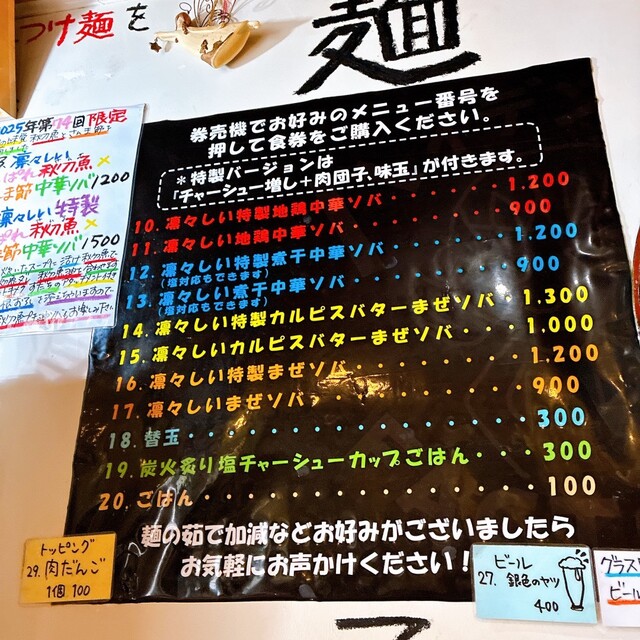 つけ麺を
麺
2025年第14回限定
凛々しい
秋刀魚×
節中華ソバ1200
凛々しい特製
秋刀魚×
節中華ソバ1500
券売機でお好みのメニュー番号を
押して食券をご購入ください。
＊特製バージョンは
「チャーシュー増し＋肉団子、味玉」が付きます。
10. 凛々しい特製地鶏中華ソバ・・・・・・1.200
11. 凛々しい地鶏中華ソバ・・・・・・・・900
12. 凛々しい特製煮干中華ソバ・・・・・・1.200
（塩対応もできます）
13. 凛々しい煮干中華ソバ・・・・・・・・900
（塩対応もできます）
14. 凛々しい特製カルピスバターまぜソバ・1.300
15. 凛々しいカルピスバターまぜソバ・・・1.000
16. 凛々しい特製まぜソバ・・・・・・・・1.200
17. 凛々しいまぜソバ・・・・・・・・・・900
18. 替玉・・・・・・・・・・・・・・・・300
19. 炭火炙り塩チャーシューカップごはん・・・300
20. ごはん・・・・・・・・・・・・・・・100
麺の茹で加減などお好みがございましたら
お気軽にお声かけください！
トッピング
29. 肉だんご
1個 100
ビール
27. 銀色のヤツ
400
グラス
ビール